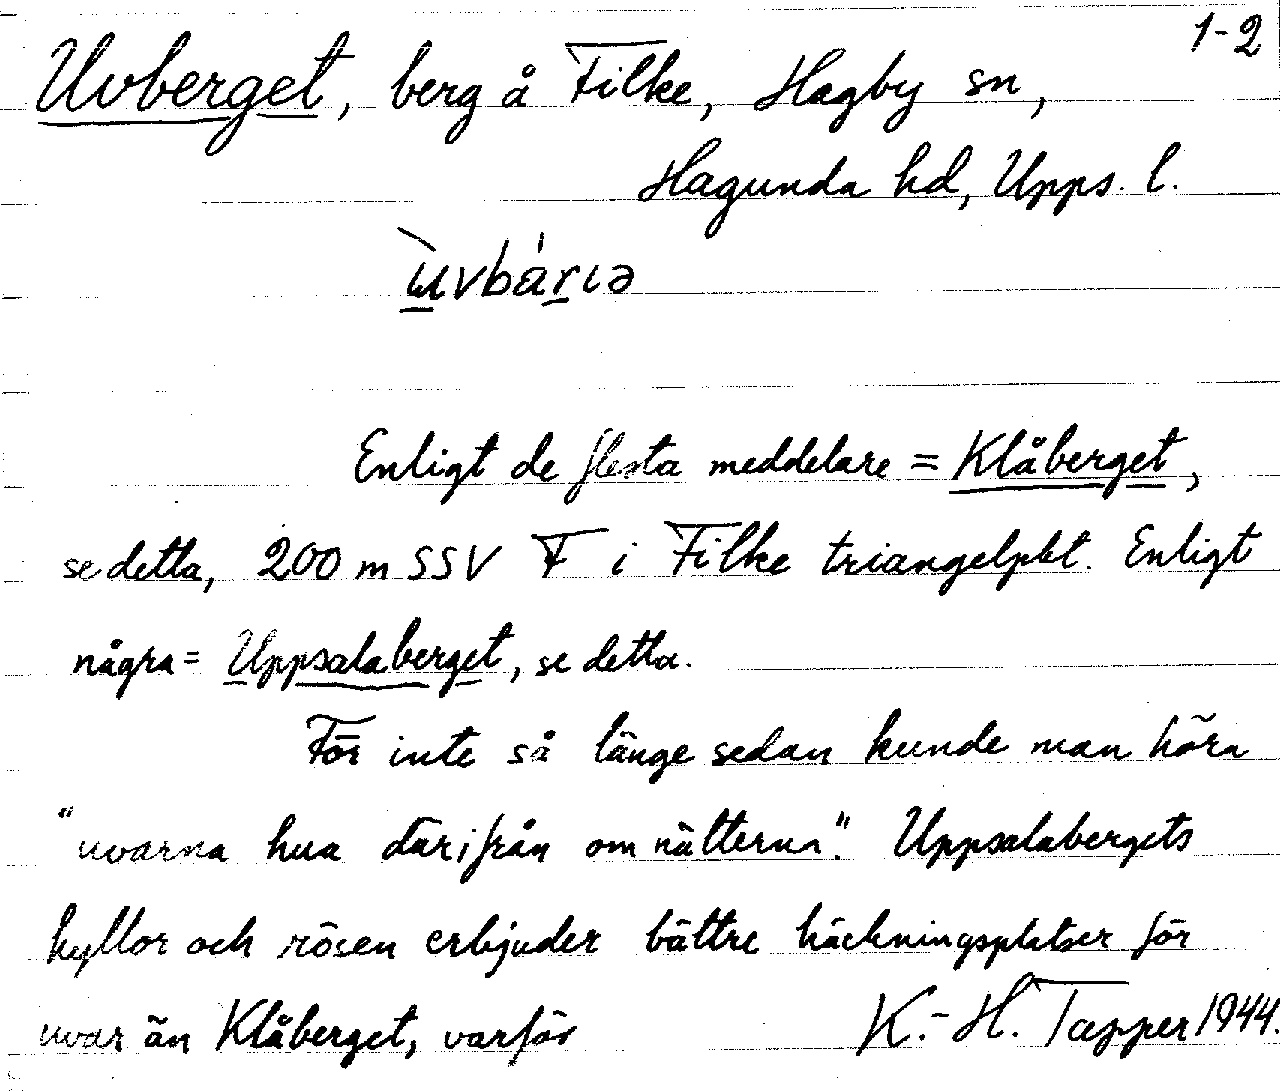 1-2
Uvberget, berg å Filke, Hagby sn,
Hagunda hd, Upps. l.
Enligt de flesta meddelare = Klåberget,
se detta, 200 m SSV F i Filke triangelpkt. Enligt
några = Uppsalaberget, se detta.
För inte så länge sedan kunde man höra
"uvarna hua därifrån om nätterna". Uppsalabergets
hyllor och rösen erbjuder bättre häckningsplatser för
uvar än Klåberget, varför
K.-H. Tapper 1944.